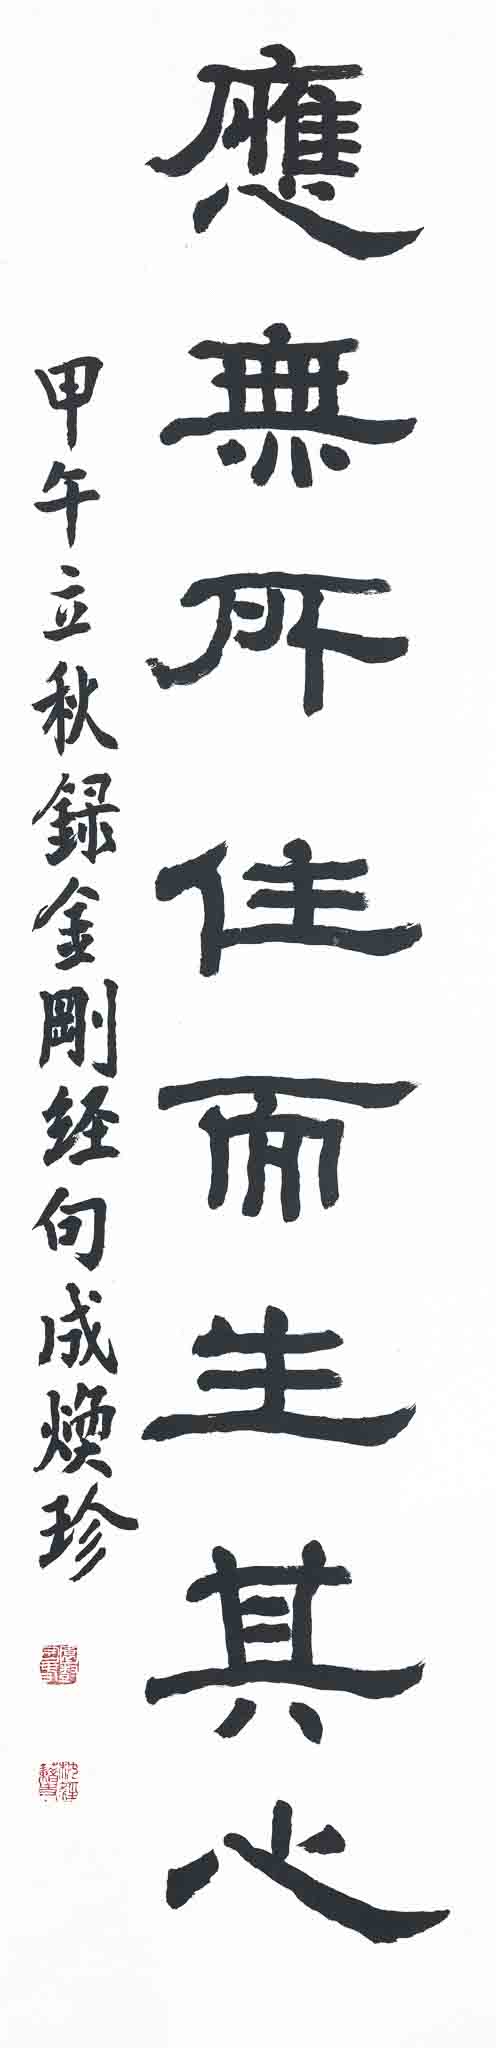 應無所住而生其心
甲午立秋録金剛経句成煥珍